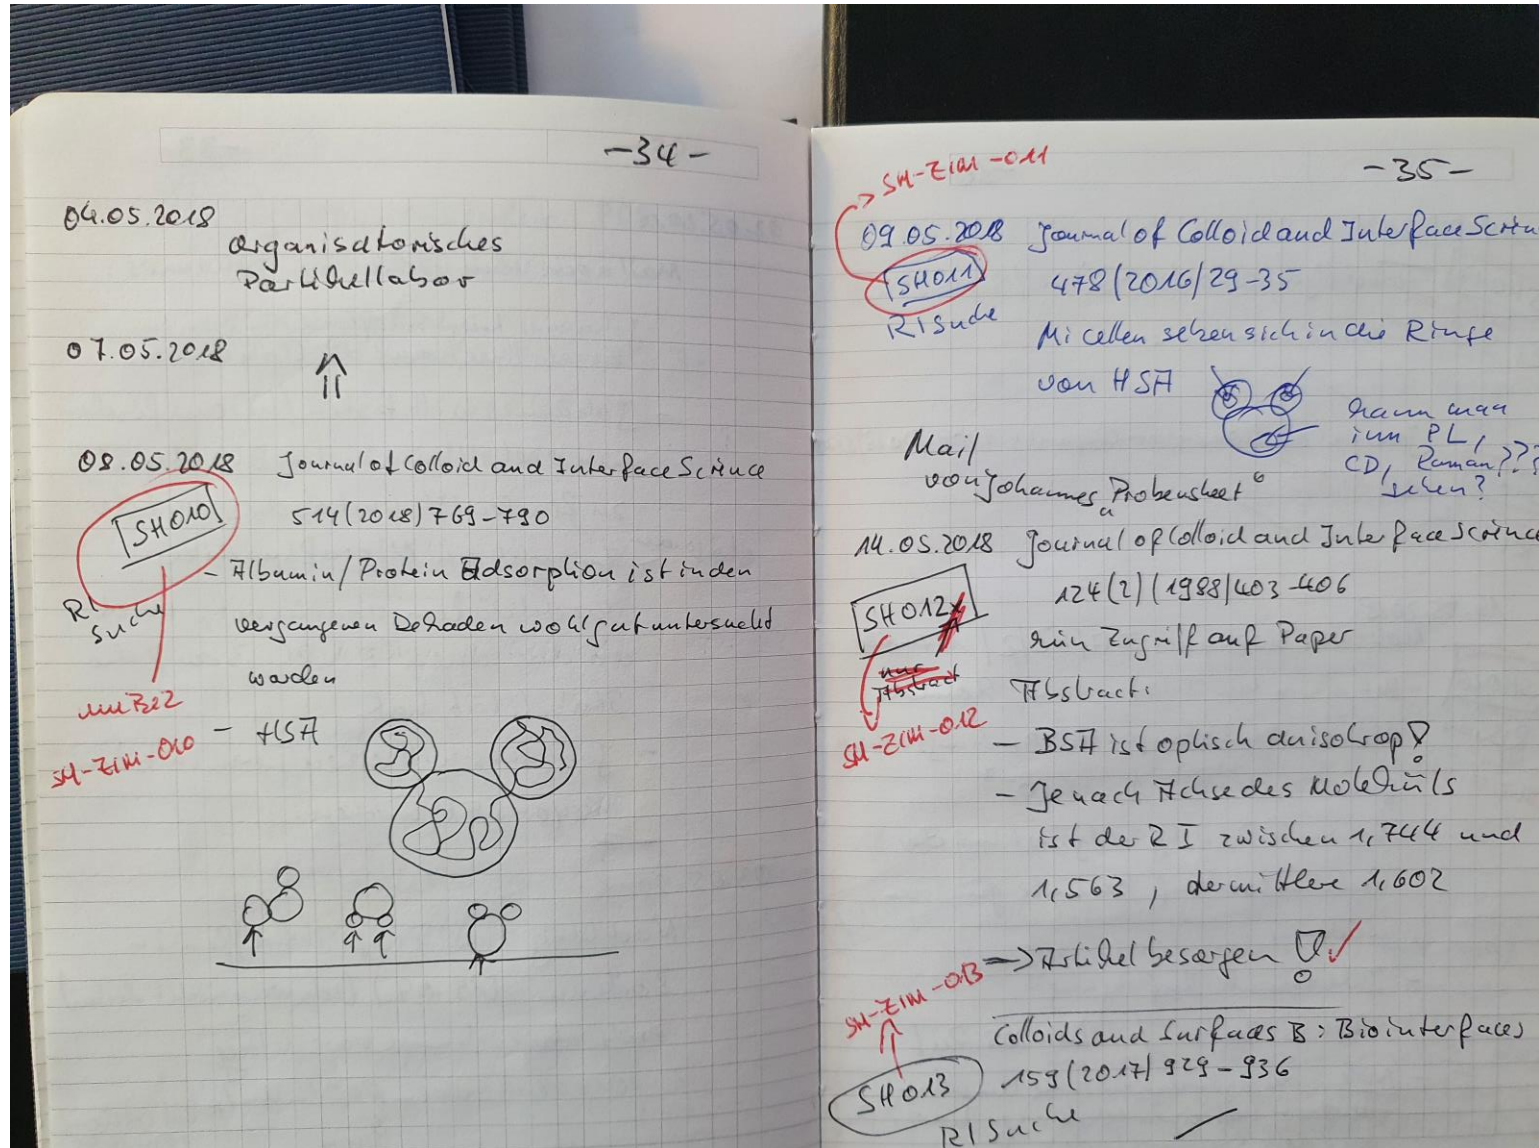 -34-
04.05.2018
Organisatorisches
Partikellabor
07.05.2018
08.05.2018 Journal of Colloid and Interface Science
SH010
514(2018)769-790
RI
Suche
- Albumin/Protein Adsorption ist in den
vergangenen Dekaden wohl gut untersucht
worden
SH-ZIM-010
- HSA
-35-
SH-ZIM-011
09.05.2018 Journal of Colloid and Interface Scien
SH011
478(2016)29-35
RI Suche
Micellen setzen sich in die Ringe
von HSA
kann man
im PL,
CD, Raman???
sehen?
Mail
von Johannes „Probensheet“
14.05.2018 Journal of Colloid and Interface Science
SH012
124(2)(1988)403-406
kein Zugriff auf Paper
nur
Abstract
Abstract:
SH-ZIM-012
- BSA ist optisch anisotrop!
- Je nach Achse des Moleküls
ist der RI zwischen 1,744 und
1,563, der mittlere 1,602
=> Artikel besorgen!
SH-ZIM-013
Colloids and Surfaces B: Biointerfaces
SH013
159(2017)929-936
RI Suche